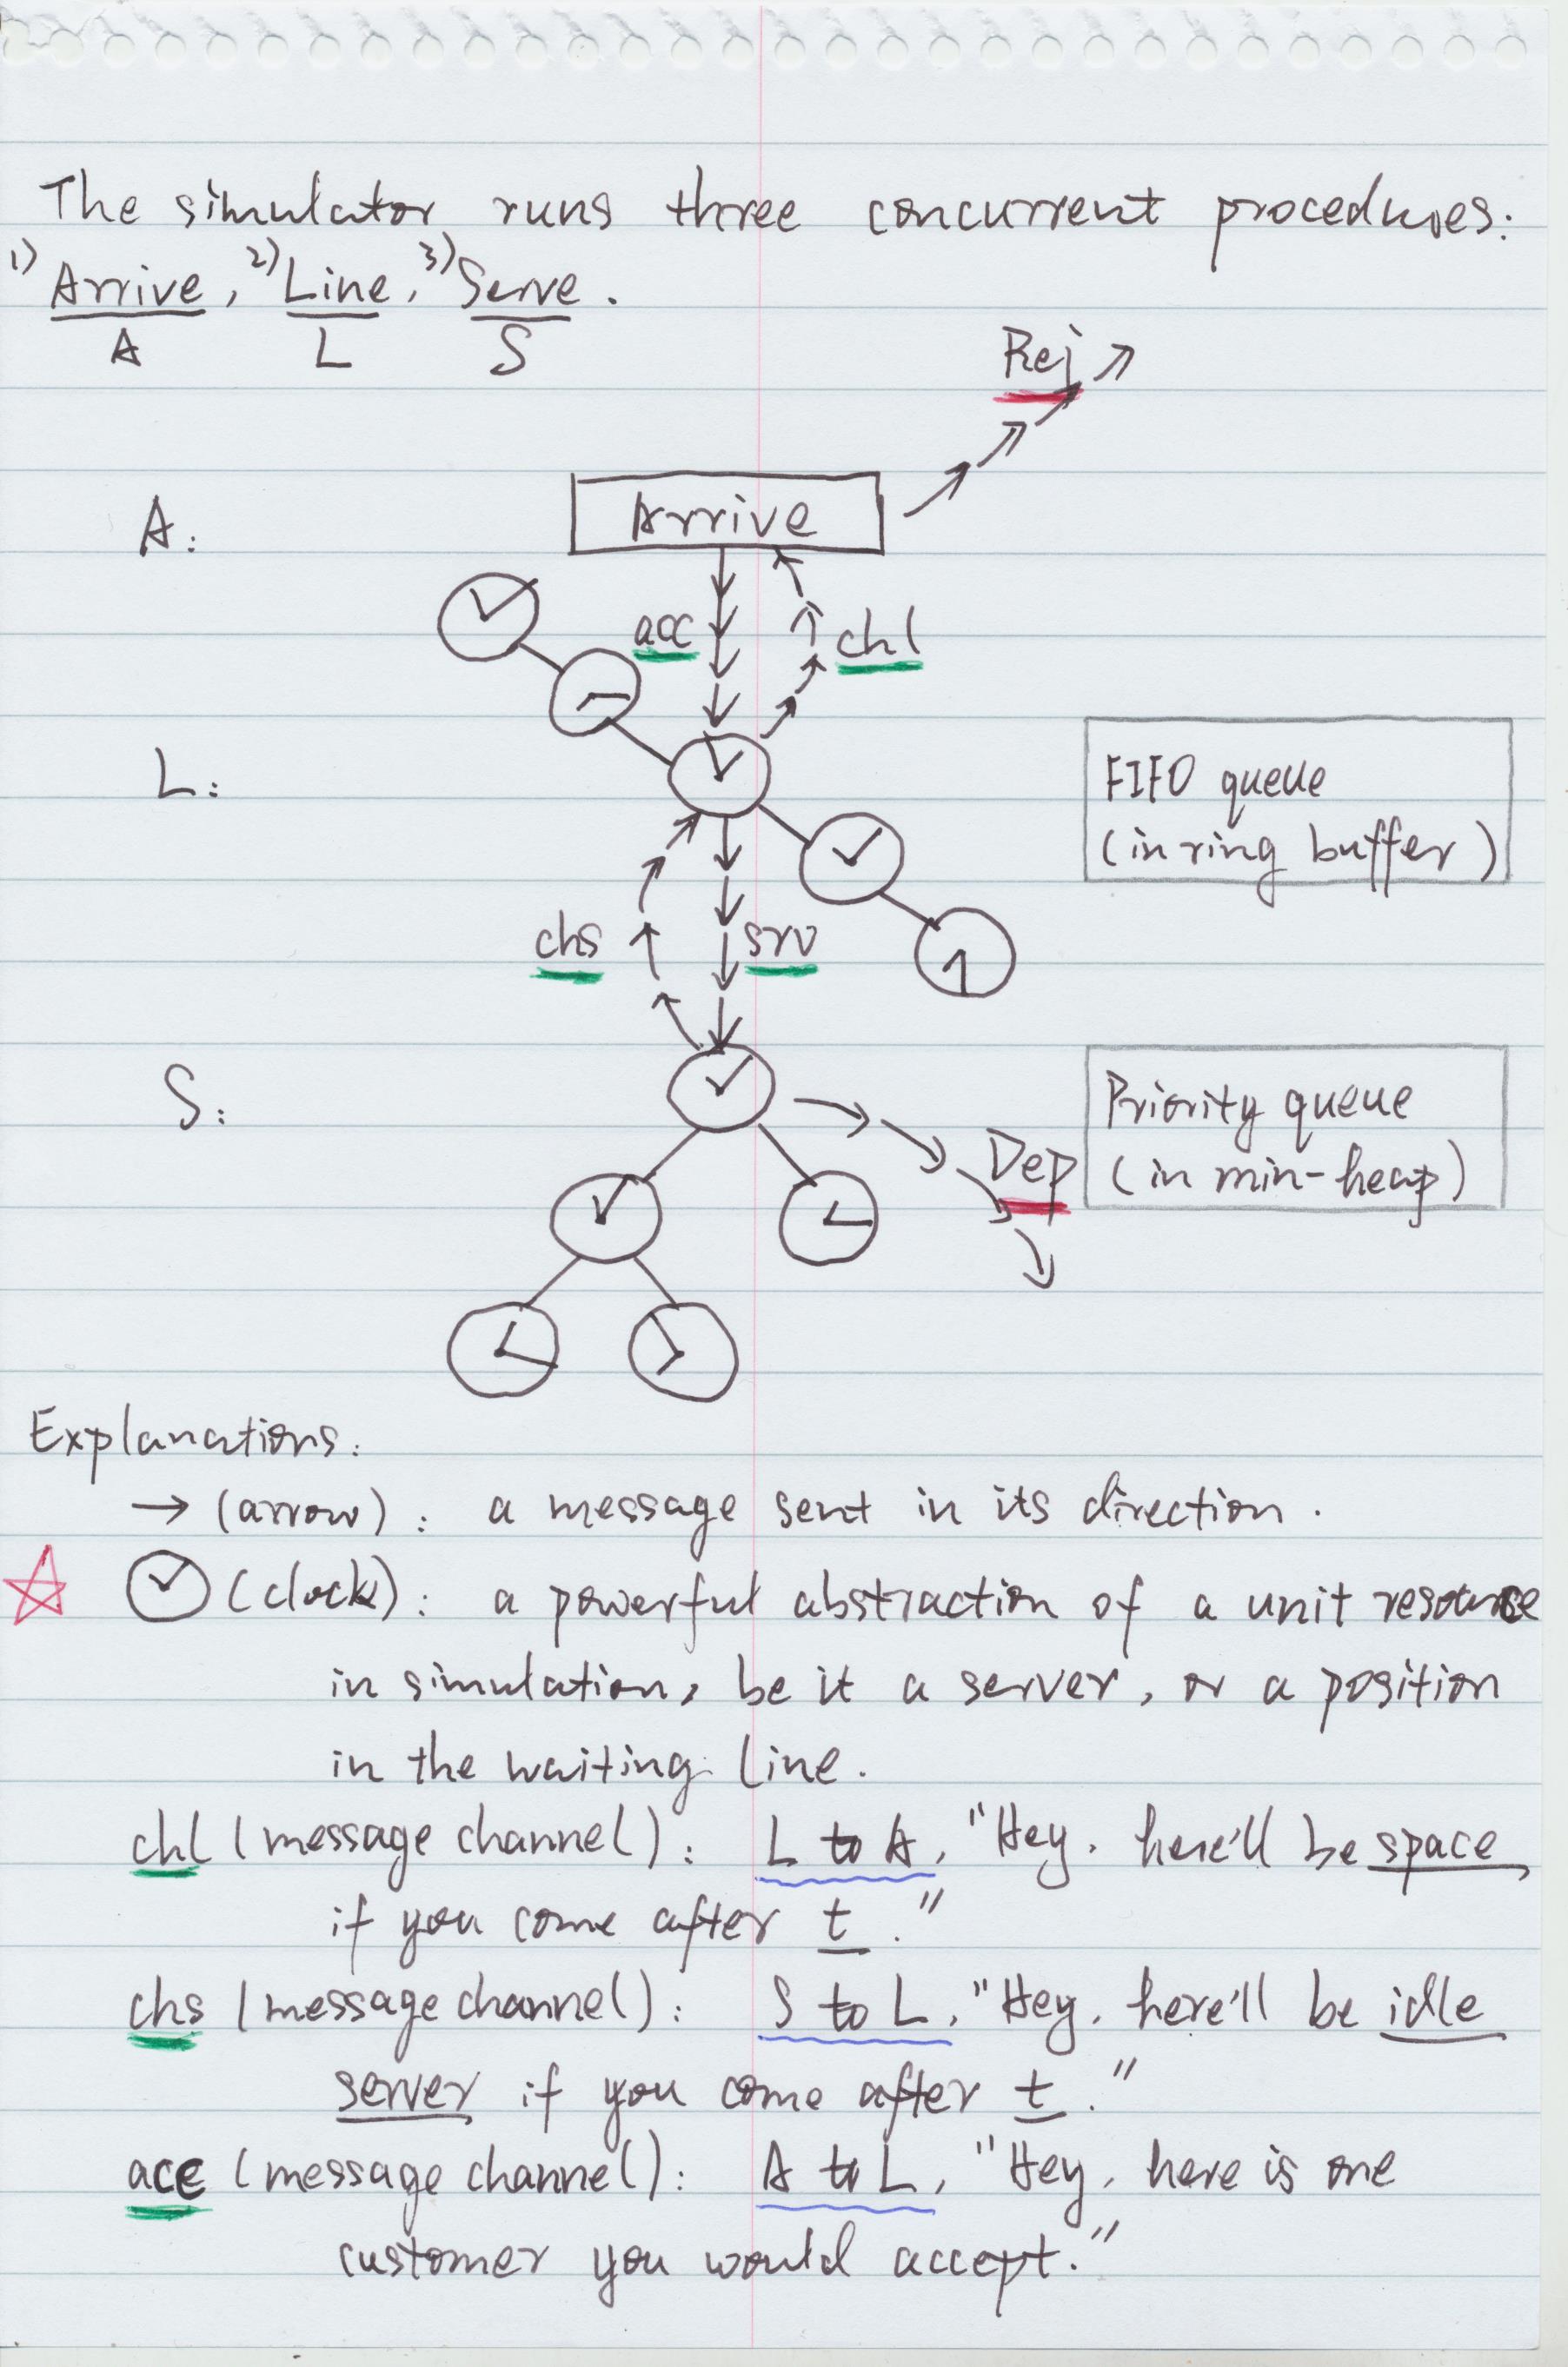 The simulator runs three concurrent procedures:
1) Arrive, 2) Line, 3) Serve.
A L S
Rej
A: Arrive
acc chl
L: FIFO queue
(in ring buffer)
chs srv
S: Priority queue
Dep (in min-heap)
Explanations:
→ (arrow): a message sent in its direction.
(clock): a powerful abstraction of a unit resource
in simulation, be it a server, or a position
in the waiting line.
chl (message channel): L to A, "Hey, here'll be space,
if you come after t."
chs (message channel): S to L, "Hey, here'll be idle
server if you come after t."
acc (message channel): A to L, "Hey, here is one
customer you would accept."